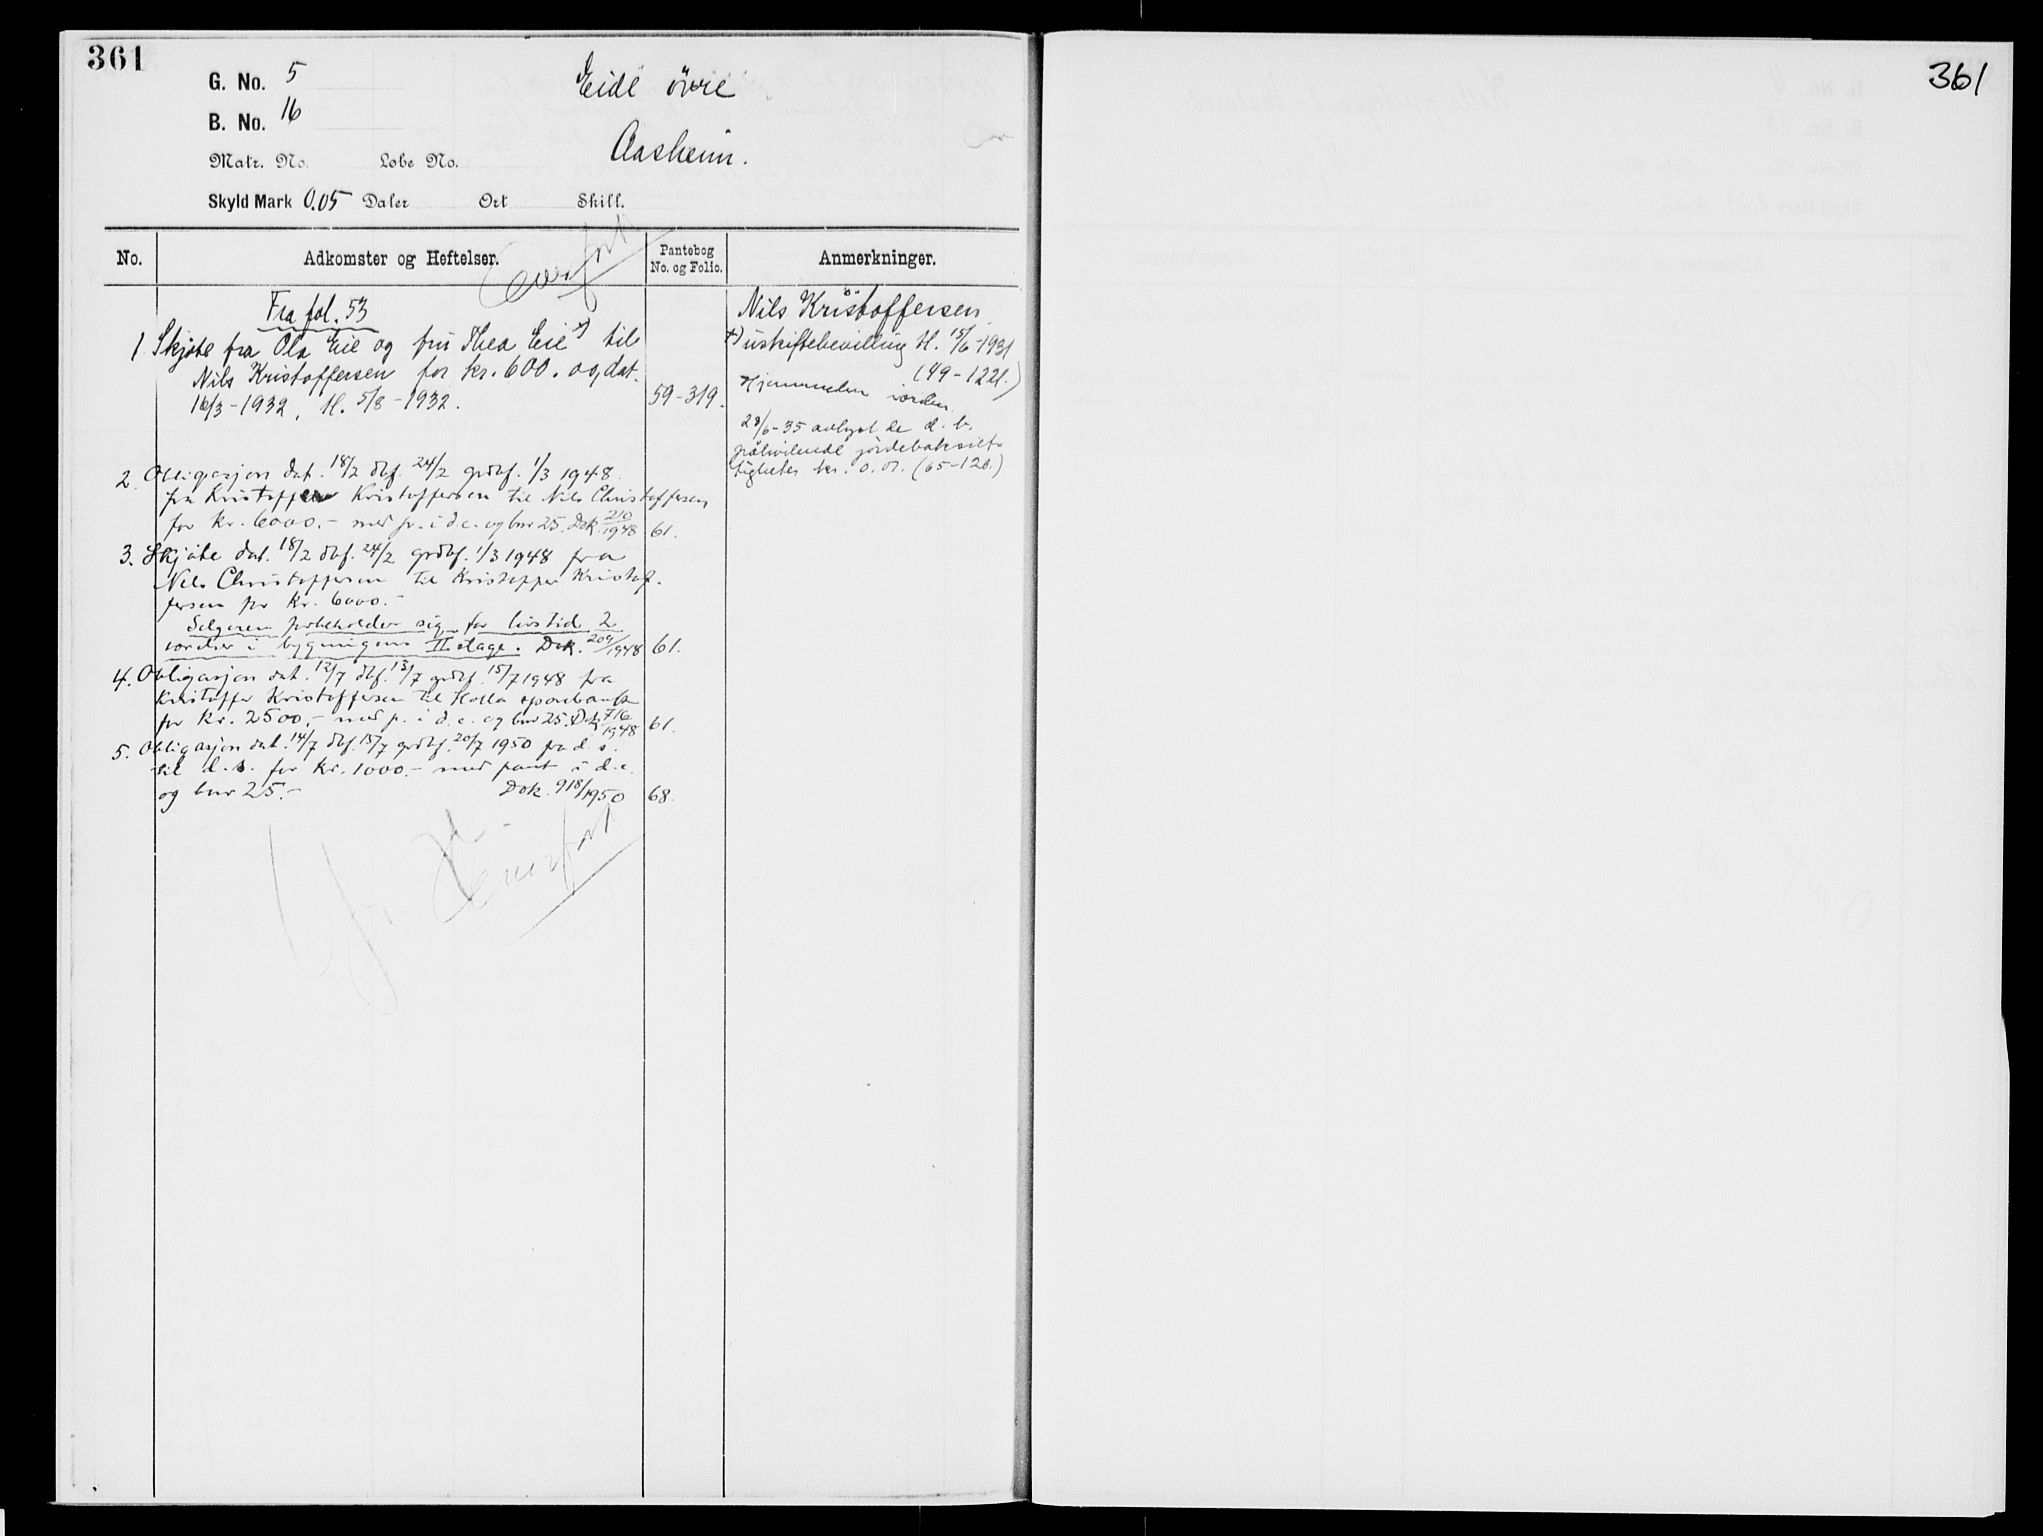 361
361
G. No. 5
Eide övre
B. No. 16
Aasheim.
Matr. No. Løbe No.
Skyld Mark 0.05 Daler Ort Skill.
Overført
No. Adkomster og Heftelser. Pantebog No. og Folio. Anmerkninger.
Fra fol. 53
1 Skjøte fra Ola Eie og fru Thea Eie x) til
Nils Kristoffersen for kr. 600. og dat.
16/3-1932, tl. 5/8-1932. 59-319.
2. Obligasjon dat. 18/2 dbf. 24/2 grdbf. 1/3 1948
fra Kristoffer Kristoffersen til Nils Christoffersen
for kr. 6000.- med p. i d.e. og bnr 25. Dok. 210/1948 61.
3. Skjøte dat. 18/2 dbf. 24/2 grdbf. 1/3 1948 fra
Nils Christoffersen til Kristoffer Kristof-
fersen for kr. 6000.-
Selgeren forbeholder sig for livstid 2
værelser i bygningens II etage. Dok. 209/1948 61.
4. Obligasjon dat. 12/7 dbf. 13/7 grdbf. 15/7 1948 fra
Kristoffer Kristoffersen til Holla sparebank
for kr. 2500,- med p. i d.e. og bnr 25. Dok 716/1948 61.
5. Obligasjon dat. 14/7 dbf. 15/7 grdbf. 20/7 1950 fra d.s.
til d.s. for kr. 1000.- med pant i d.e.
og bnr 25.- Dok. 918/1950 68.
Overført
Nils Kristoffersen
x) uskiftebevilling tl. 15/6-1931
(49-1221.)
Hjemmelen i orden
28/6-35 avlyst de d. b.
påhvilende jordeboksrett-
tigheter kr. 0.01. (65-126.)